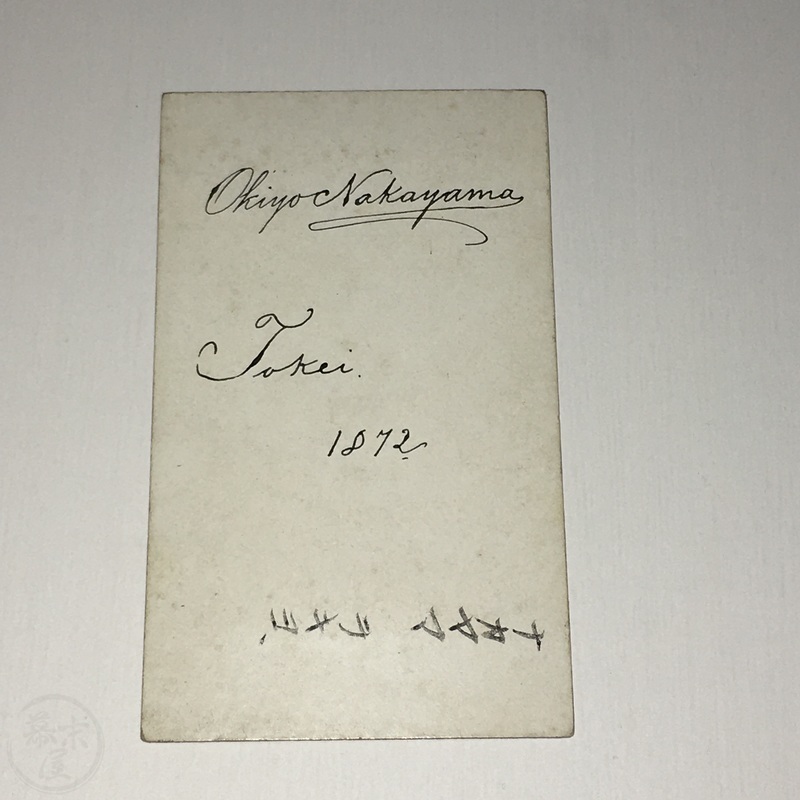 Okiyo Nakayama
Tokei.
1872
ナカヤマ ヲキヨ
幕末屋